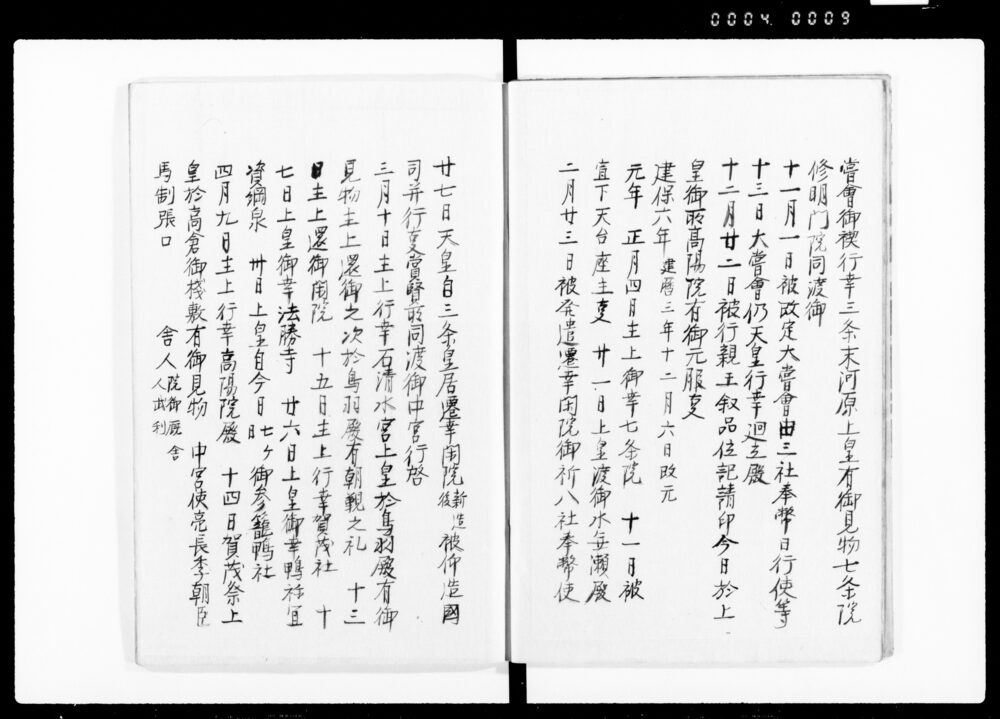 0004 0009
嘗會御禊行幸三条末河原上皇有御見物七条院
修明門院同渡御
十一月一日被改定大嘗會由三社奉幣日行使等
十三日大嘗會仍天皇行幸廻立殿
十二月廿二日被行親王叙品位記請印今日於上
皇御所高陽院有御元服事
建保六年 建暦三年十二月六日改元
元年 正月四月主上御幸七条院 十一日被
宣下天台座主事 廿一日上皇渡御水無瀬殿
二月廿三日被発遣遷幸閑院御祈八社奉幣使
廿七日天皇自三条皇居遷幸閑院新造後被仰造國
司并行事賞賢所同渡御中宮行啓
三月十日主上行幸石清水宮上皇於鳥羽殿有御
見物主上還御之次於鳥羽殿有朝覲之礼 十三
日主上還御閑院 十五日主上行幸賀茂社 十
七日上皇御幸法勝寺 廿六日上皇御幸鴨祢宜
資綱泉 卅日上皇自今日七ケ日御参籠鴨社
四月九日主上行幸高陽院殿 十四日賀茂祭上
皇於高倉御棧敷有御見物 中宮使亮長季朝臣
馬制張口 舎人院御厩舎人武利